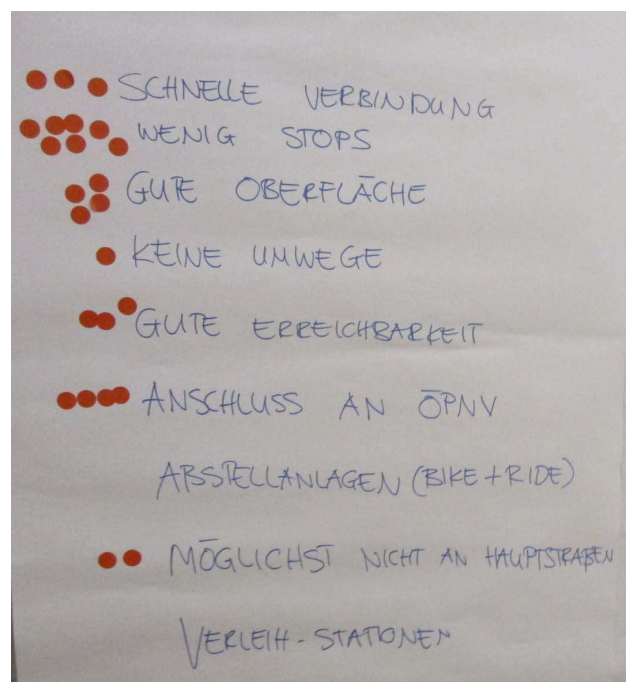 SCHNELLE VERBINDUNG
WENIG STOPS
GUTE OBERFLÄCHE
KEINE UMWEGE
GUTE ERREICHBARKEIT
ANSCHLUSS AN ÖPNV
ABSTELLANLAGEN (BIKE+RIDE)
MÖGLICHST NICHT AN HAUPTSTRAßEN
VERLEIH-STATIONEN